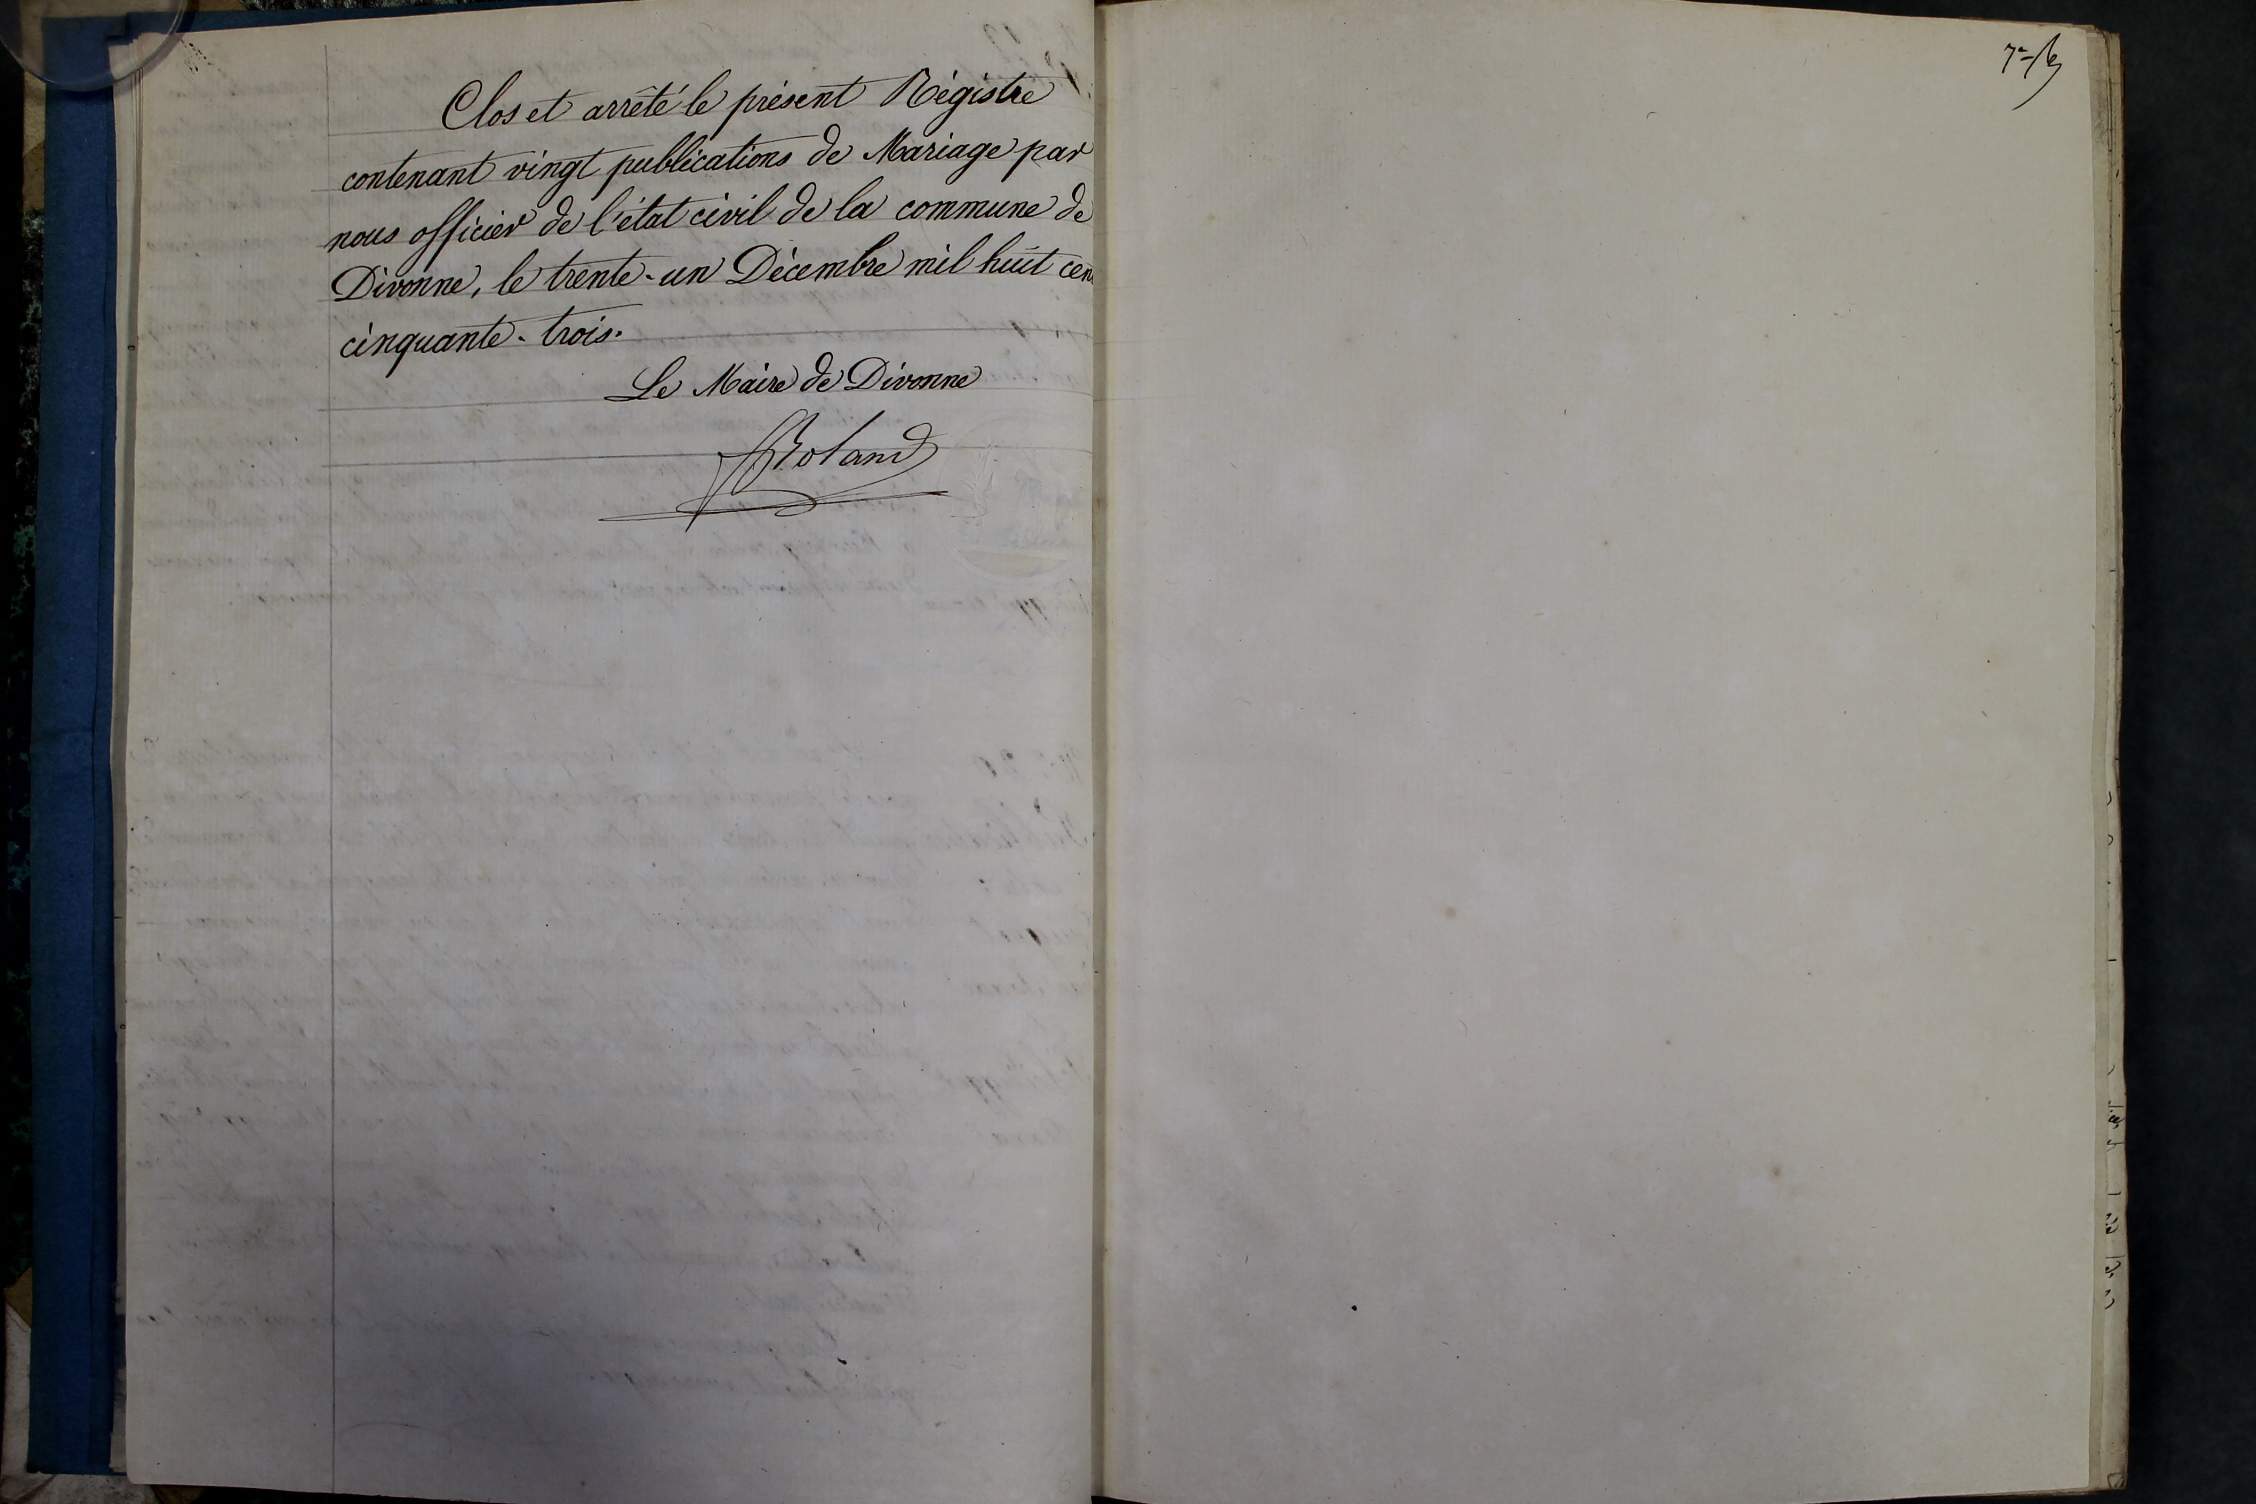 Clos et arrêté le présent Régistre
contenant vingt publications de Mariage par
nous officier de l'état civil de la commune de
Divonne, le trente-un Décembre mil huit cen
cinquante-trois.
Le Maire de Divonne
Roland